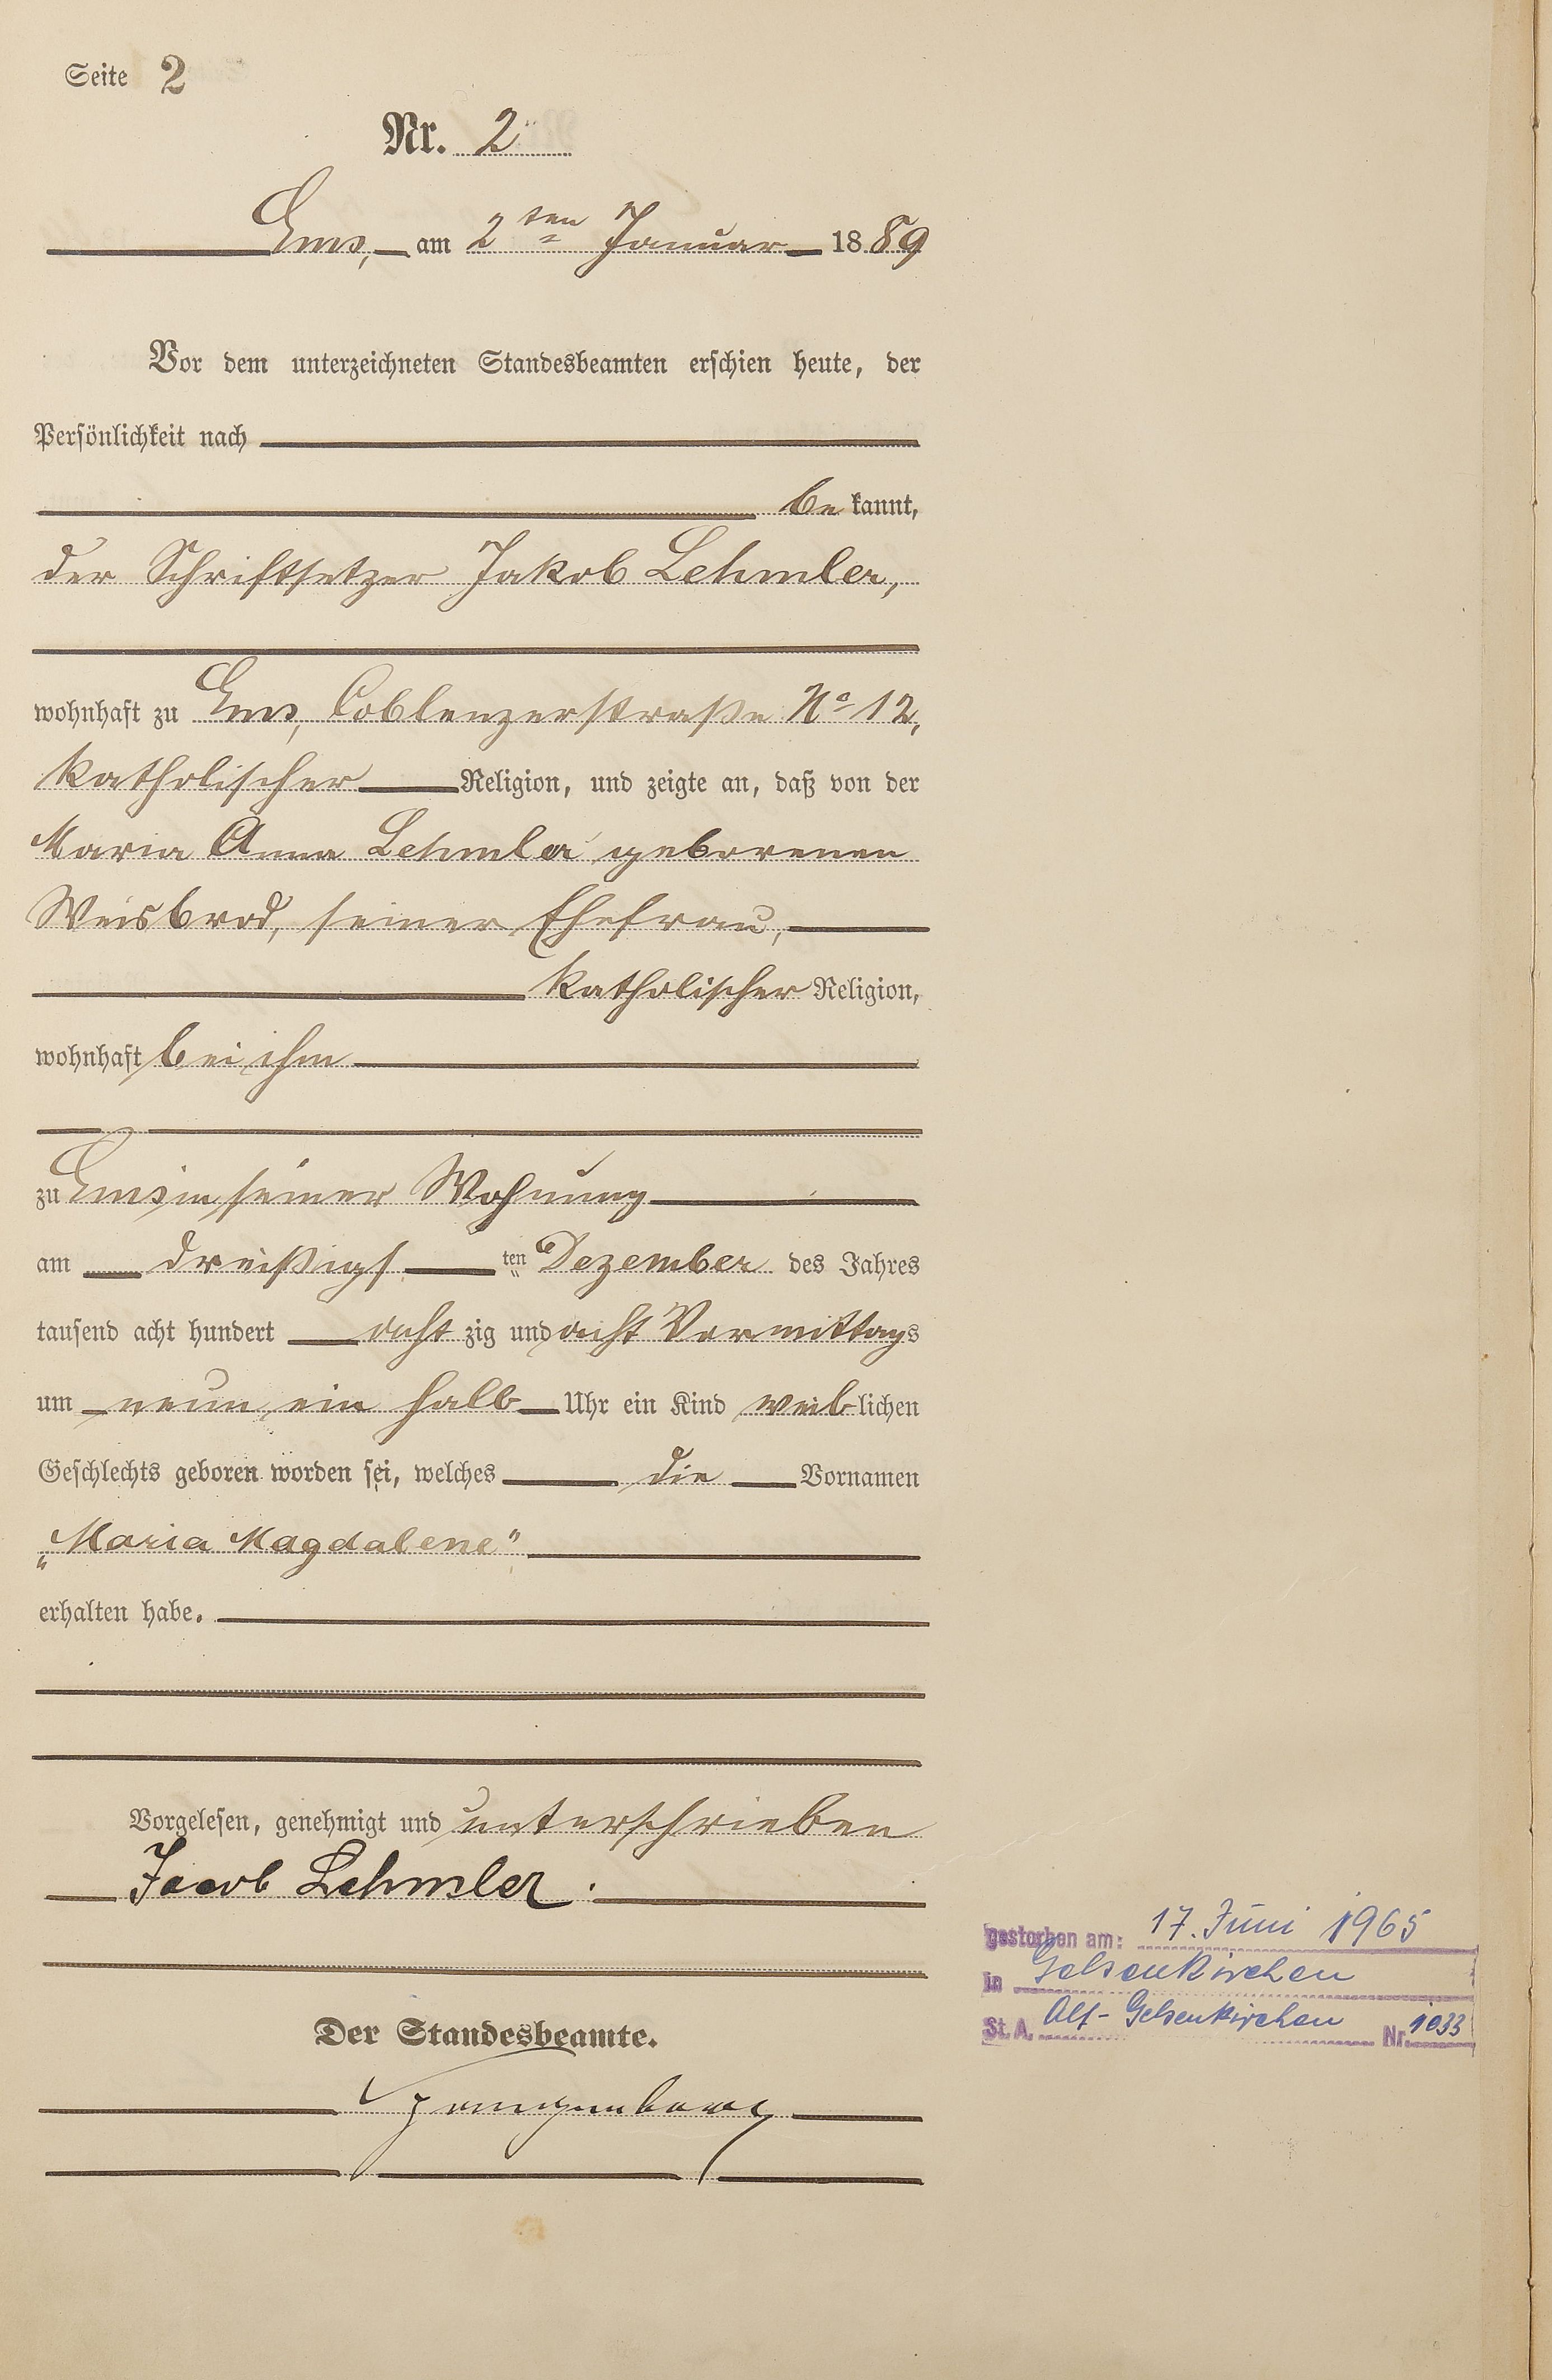 Seite 2
Nr. 2
Ems, am 2ten Januar 1889
Vor dem unterzeichneten Standesbeamten erschien heute, der
Persönlichkeit nach
be kannt,
der Schriftsetzer Jakob Lehmler,
wohnhaft zu Ems, Coblenzerstraße No 12,
katholischer Religion, und zeigte an, daß von der
Maria Anna Lehmler geborenen
Weisbrod, seiner Ehefrau,
katholischer Religion,
wohnhaft bei ihm
zu Ems in seiner Wohnung
am dreißigs ten Dezember des Jahres
tausend acht hundert acht zig und acht Vormittags
um neun ein halb Uhr ein Kind weiblichen
Geschlechts geboren worden sei, welches die Vornamen
„Maria Magdalene"
erhalten habe.
Vorgelesen, genehmigt und unterschrieben
Jacob Lehmler.
gestorben am: 17. Juni 1965
in Gelsenkirchen
St. A. Alt-Gelsenkirchen Nr. 1033
Der Standesbeamte.